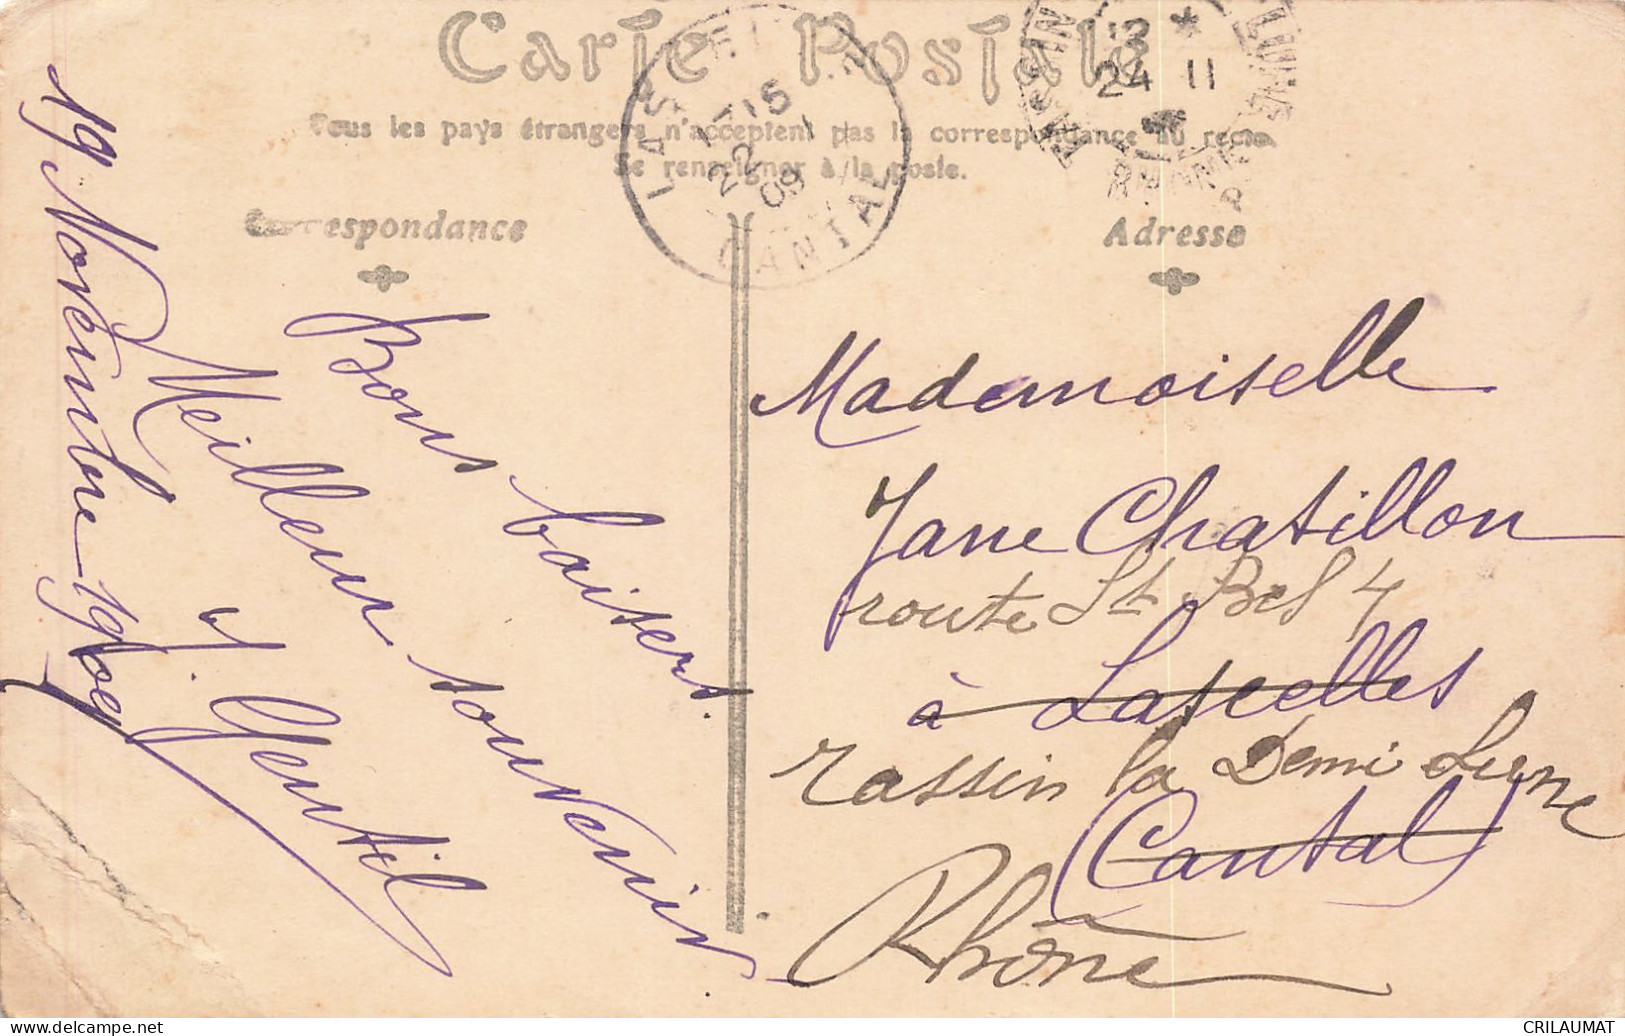 Carte Postale
Tous les pays étrangers n'acceptent pas la correspondance au recto
Se renseigner à la poste.
LASCELLE
17 15
22
09
CANTAL
13 *
24 11
RHÔNE
Correspondance
Adresse
19 Novembre 1909
Meilleur souvenir
Bons baisers.
J. Gentil
Mademoiselle
Jane Chatillon
route St Bel 4
à Lascelles
rassin la Demi Lune
(Cantal)
Rhône
CRILAUMAT